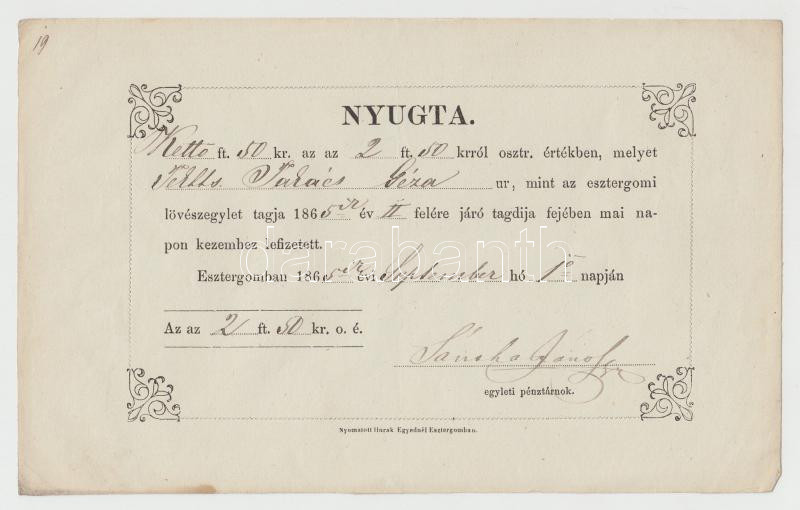 19
NYUGTA.
Kettő ft. 50 kr. az az 2 ft. 50 krról osztr. értékben, melyet
Tektts. Takács Géza ur, mint az esztergomi
lövészegylet tagja 1865ik év II felére járó tagdija fejében mai na-
pon kezemhez lefizetett.
darabanth
Esztergomban 1865ik évi September hó 1ő napján
Az az 2 ft. 50 kr. o. é.
János
egyleti pénztárnok.
Nyomatott Horák Egyednél Esztergomban.